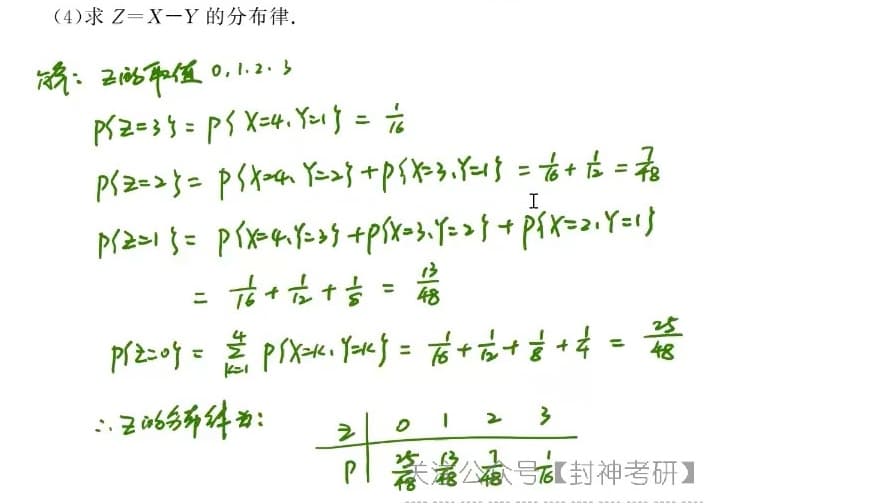 (4)求 Z=X-Y 的分布律.
解: Z的取值 0,1.2.3
P{Z=3}= P{X=4,Y=1} = 1/16
P{Z=2}= P{X=4,Y=2}+P{X=3,Y=1} = 1/16 + 1/12 = 7/48
P{Z=1}= P{X=4,Y=3}+P{X=3,Y=2}+P{X=2,Y=1}
= 1/16 + 1/12 + 1/8 = 13/48
P{Z=0} = Σ_{k=1}^{4} P{X=k,Y=k} = 1/16 + 1/12 + 1/8 + 1/4 = 25/48
∴Z的分布律为:
Z | 0 1 2 3
P | 25/48 13/48 7/48 1/16
关注公众号【封神考研】